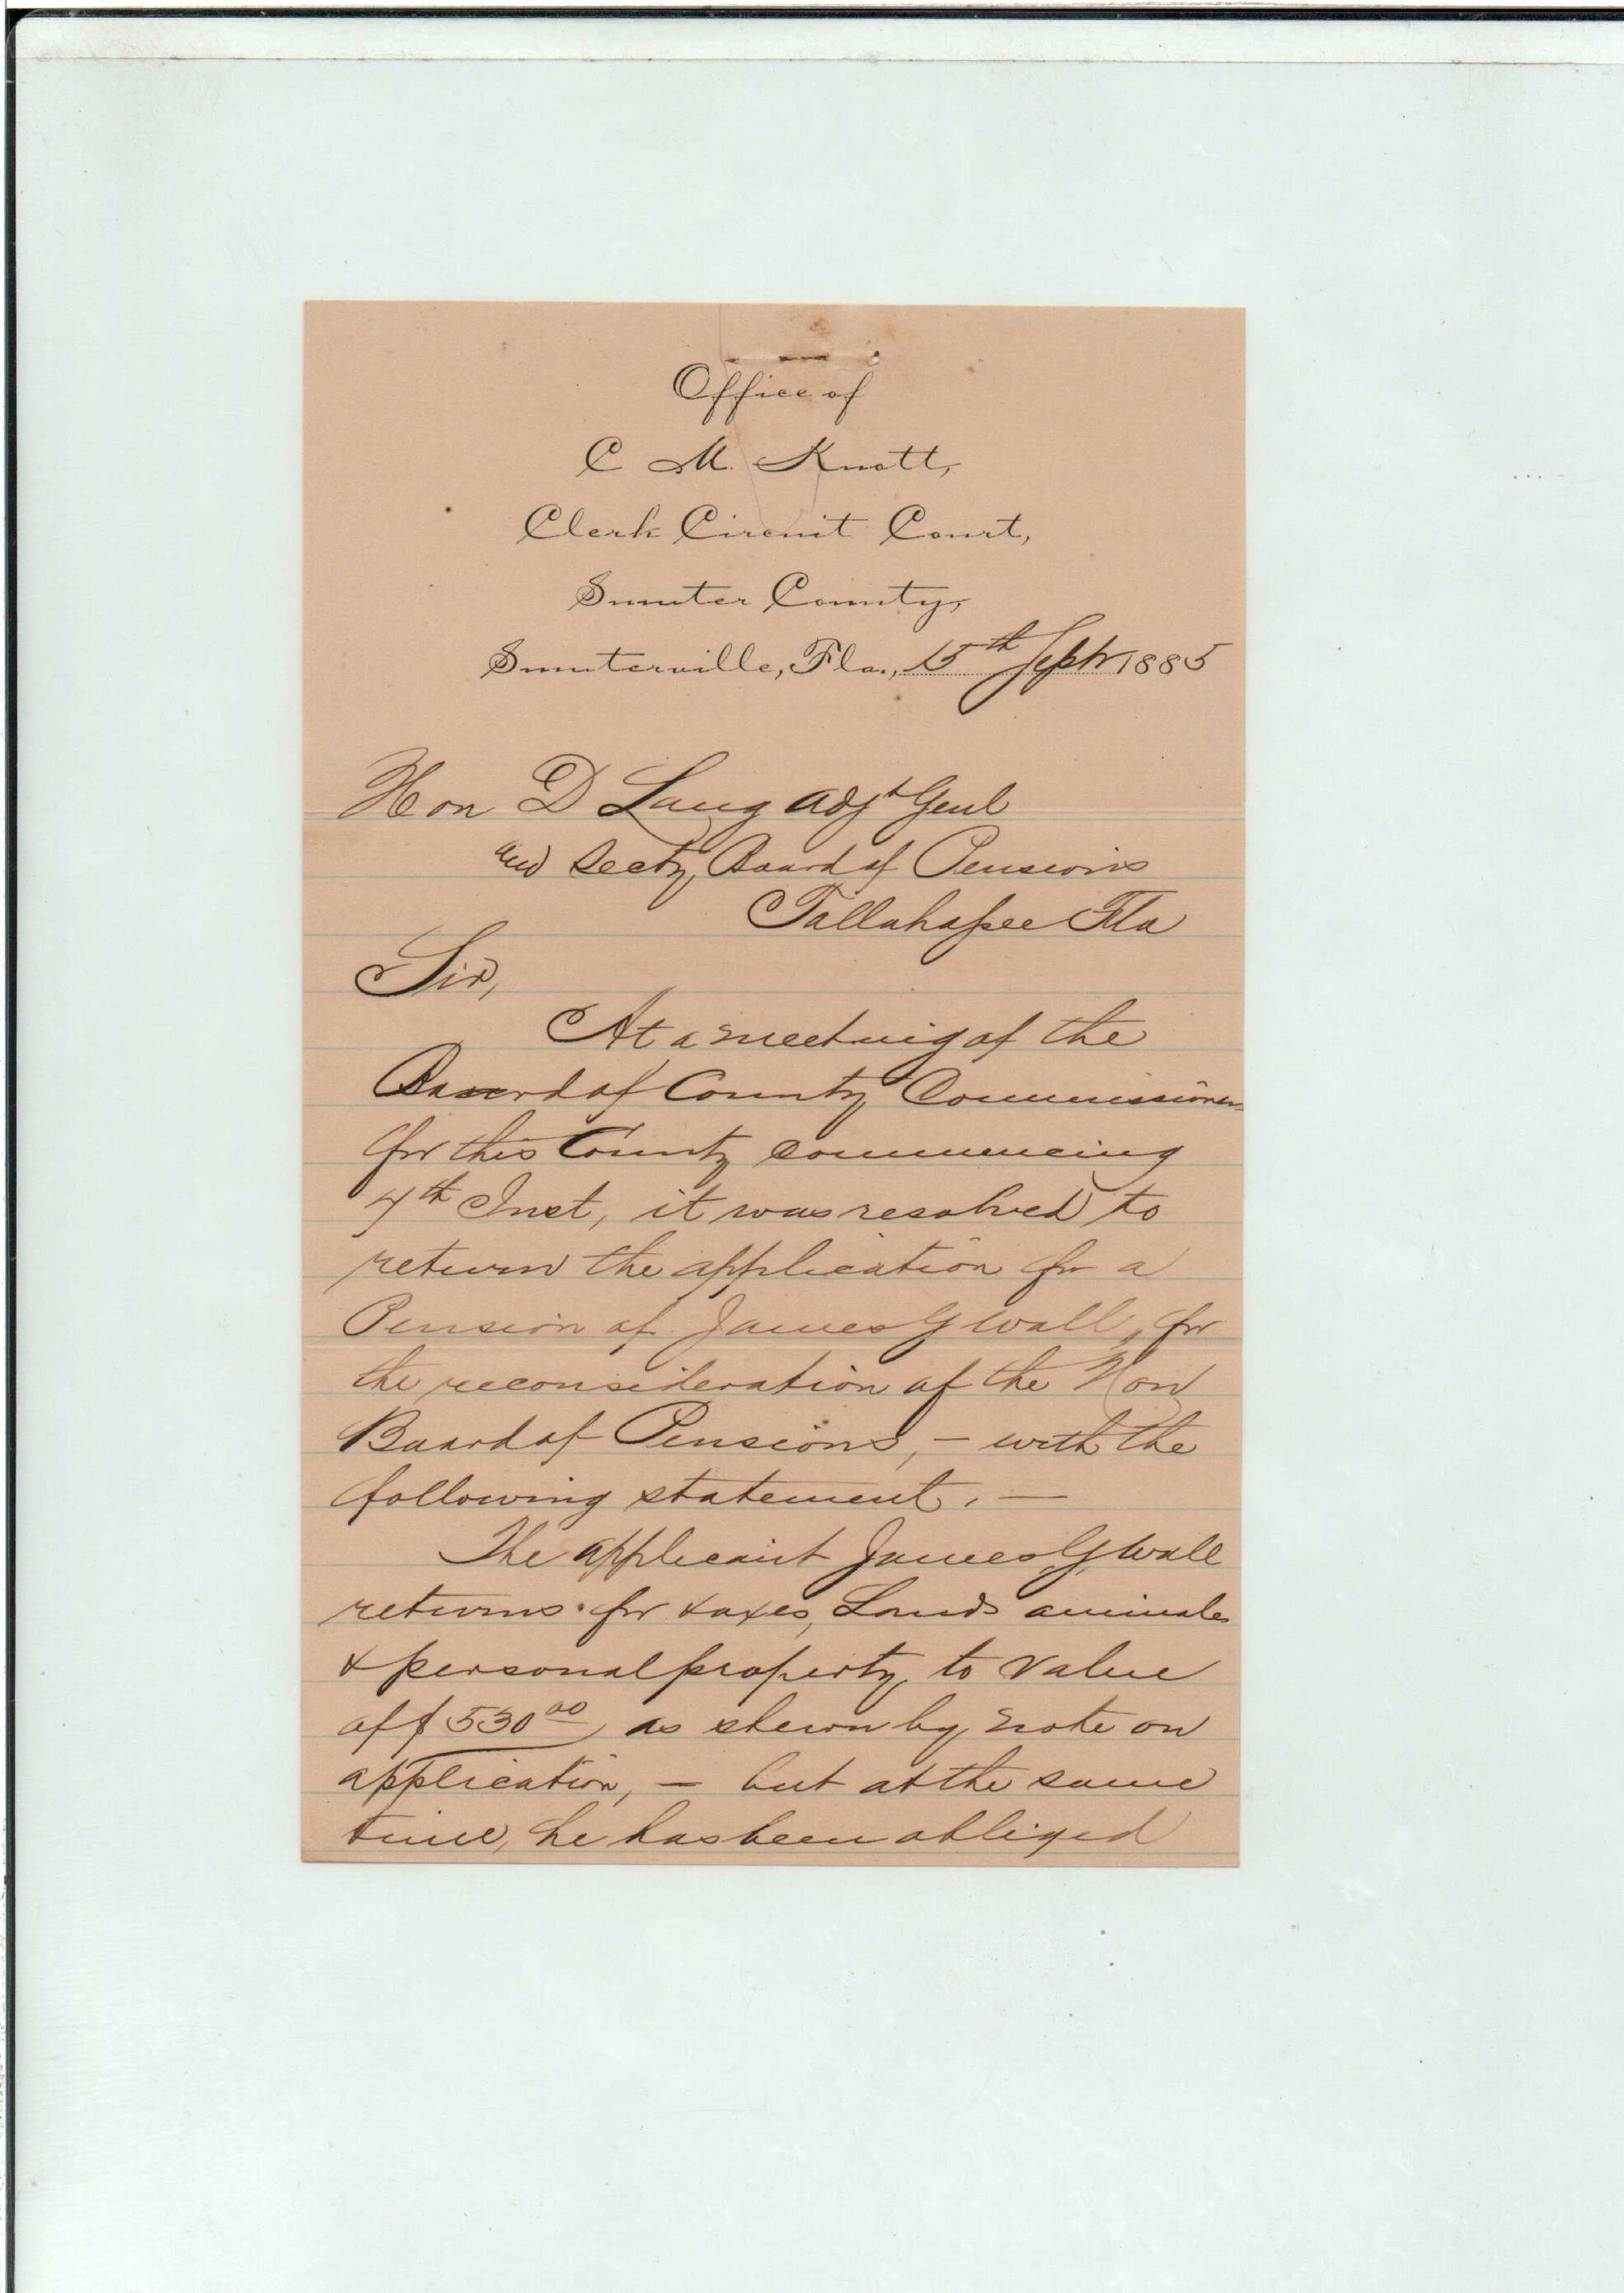 Office of
C. M. Knott,
Clerk Circuit Court,
Sumter County,
Sumterville, Fla., 15th Septr 1885
Hon D Lang Adjt Genl
and Secty Board of Pensions
Tallahassee Fla
Sir,
At a meeting of the
Board of County Commissioners
for this County commencing
7th Inst, it was resolved to
return the application for a
Pension of James G Wall, for
the reconsideration of the Hon
Board of Pensions, - with the
following statement. —
The applicant James G Wall
returns for taxes, Lands animals
& personal property, to value
of $530 00 as shewn by note on
application, — but at the same
time, he has been obliged